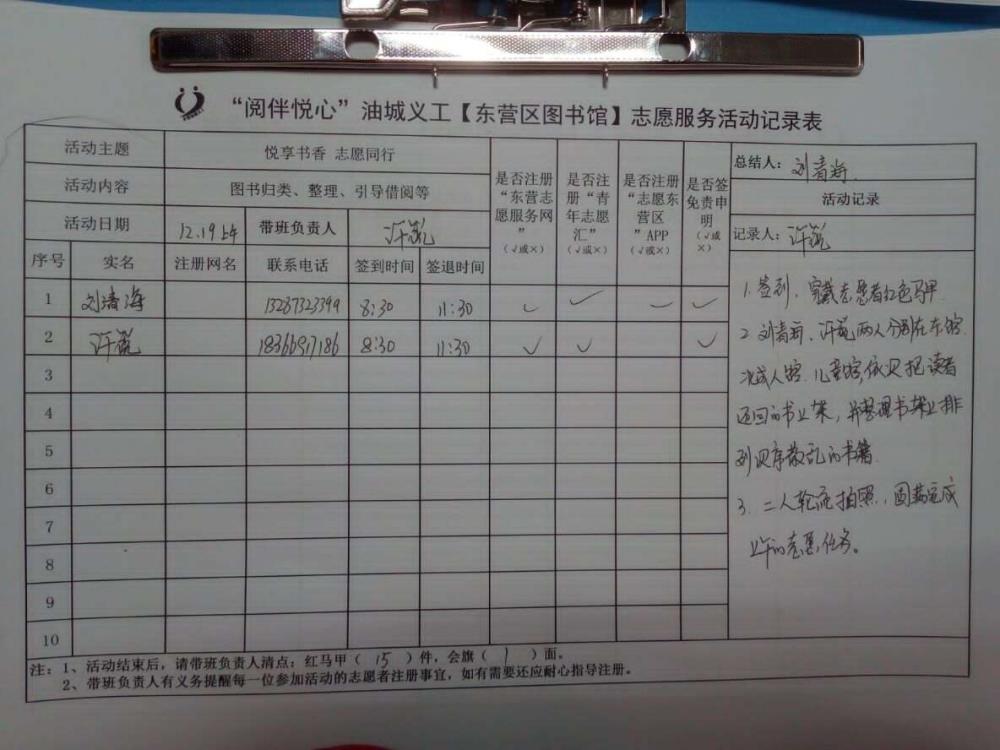 “阅伴悦心”油城义工【东营区图书馆】志愿服务活动记录表
活动主题 悦享书香 志愿同行
活动内容 图书归类、整理、引导借阅等
活动日期 12.19上午 带班负责人
是否注册“东营志愿服务网”（√或×）
是否注册“青年志愿汇”（√或×）
是否注册“志愿东营区”APP（√或×）
是否签免责申明（√或×）
总结人：刘清海
活动记录
记录人：
序号 实名 注册网名 联系电话 签到时间 签退时间
1 刘清海 13287323399 8:30 11:30 √ √ √ √
2 18366917186 8:30 11:30 √ √ √
3
4
5
6
7
8
9
10
1.签到，穿戴志愿者红色马甲
2.刘清海、两人分别在东馆
成人馆、儿童馆，依次把读者
还回的书上架，并整理书架上排
列次序散乱的书籍
3.二人轮流拍照，圆满完成
上午的志愿任务。
注：1、活动结束后，请带班负责人清点：红马甲（15）件，会旗（1）面。
2、带班负责人有义务提醒每一位参加活动的志愿者注册事宜，如有需要还应耐心指导注册。